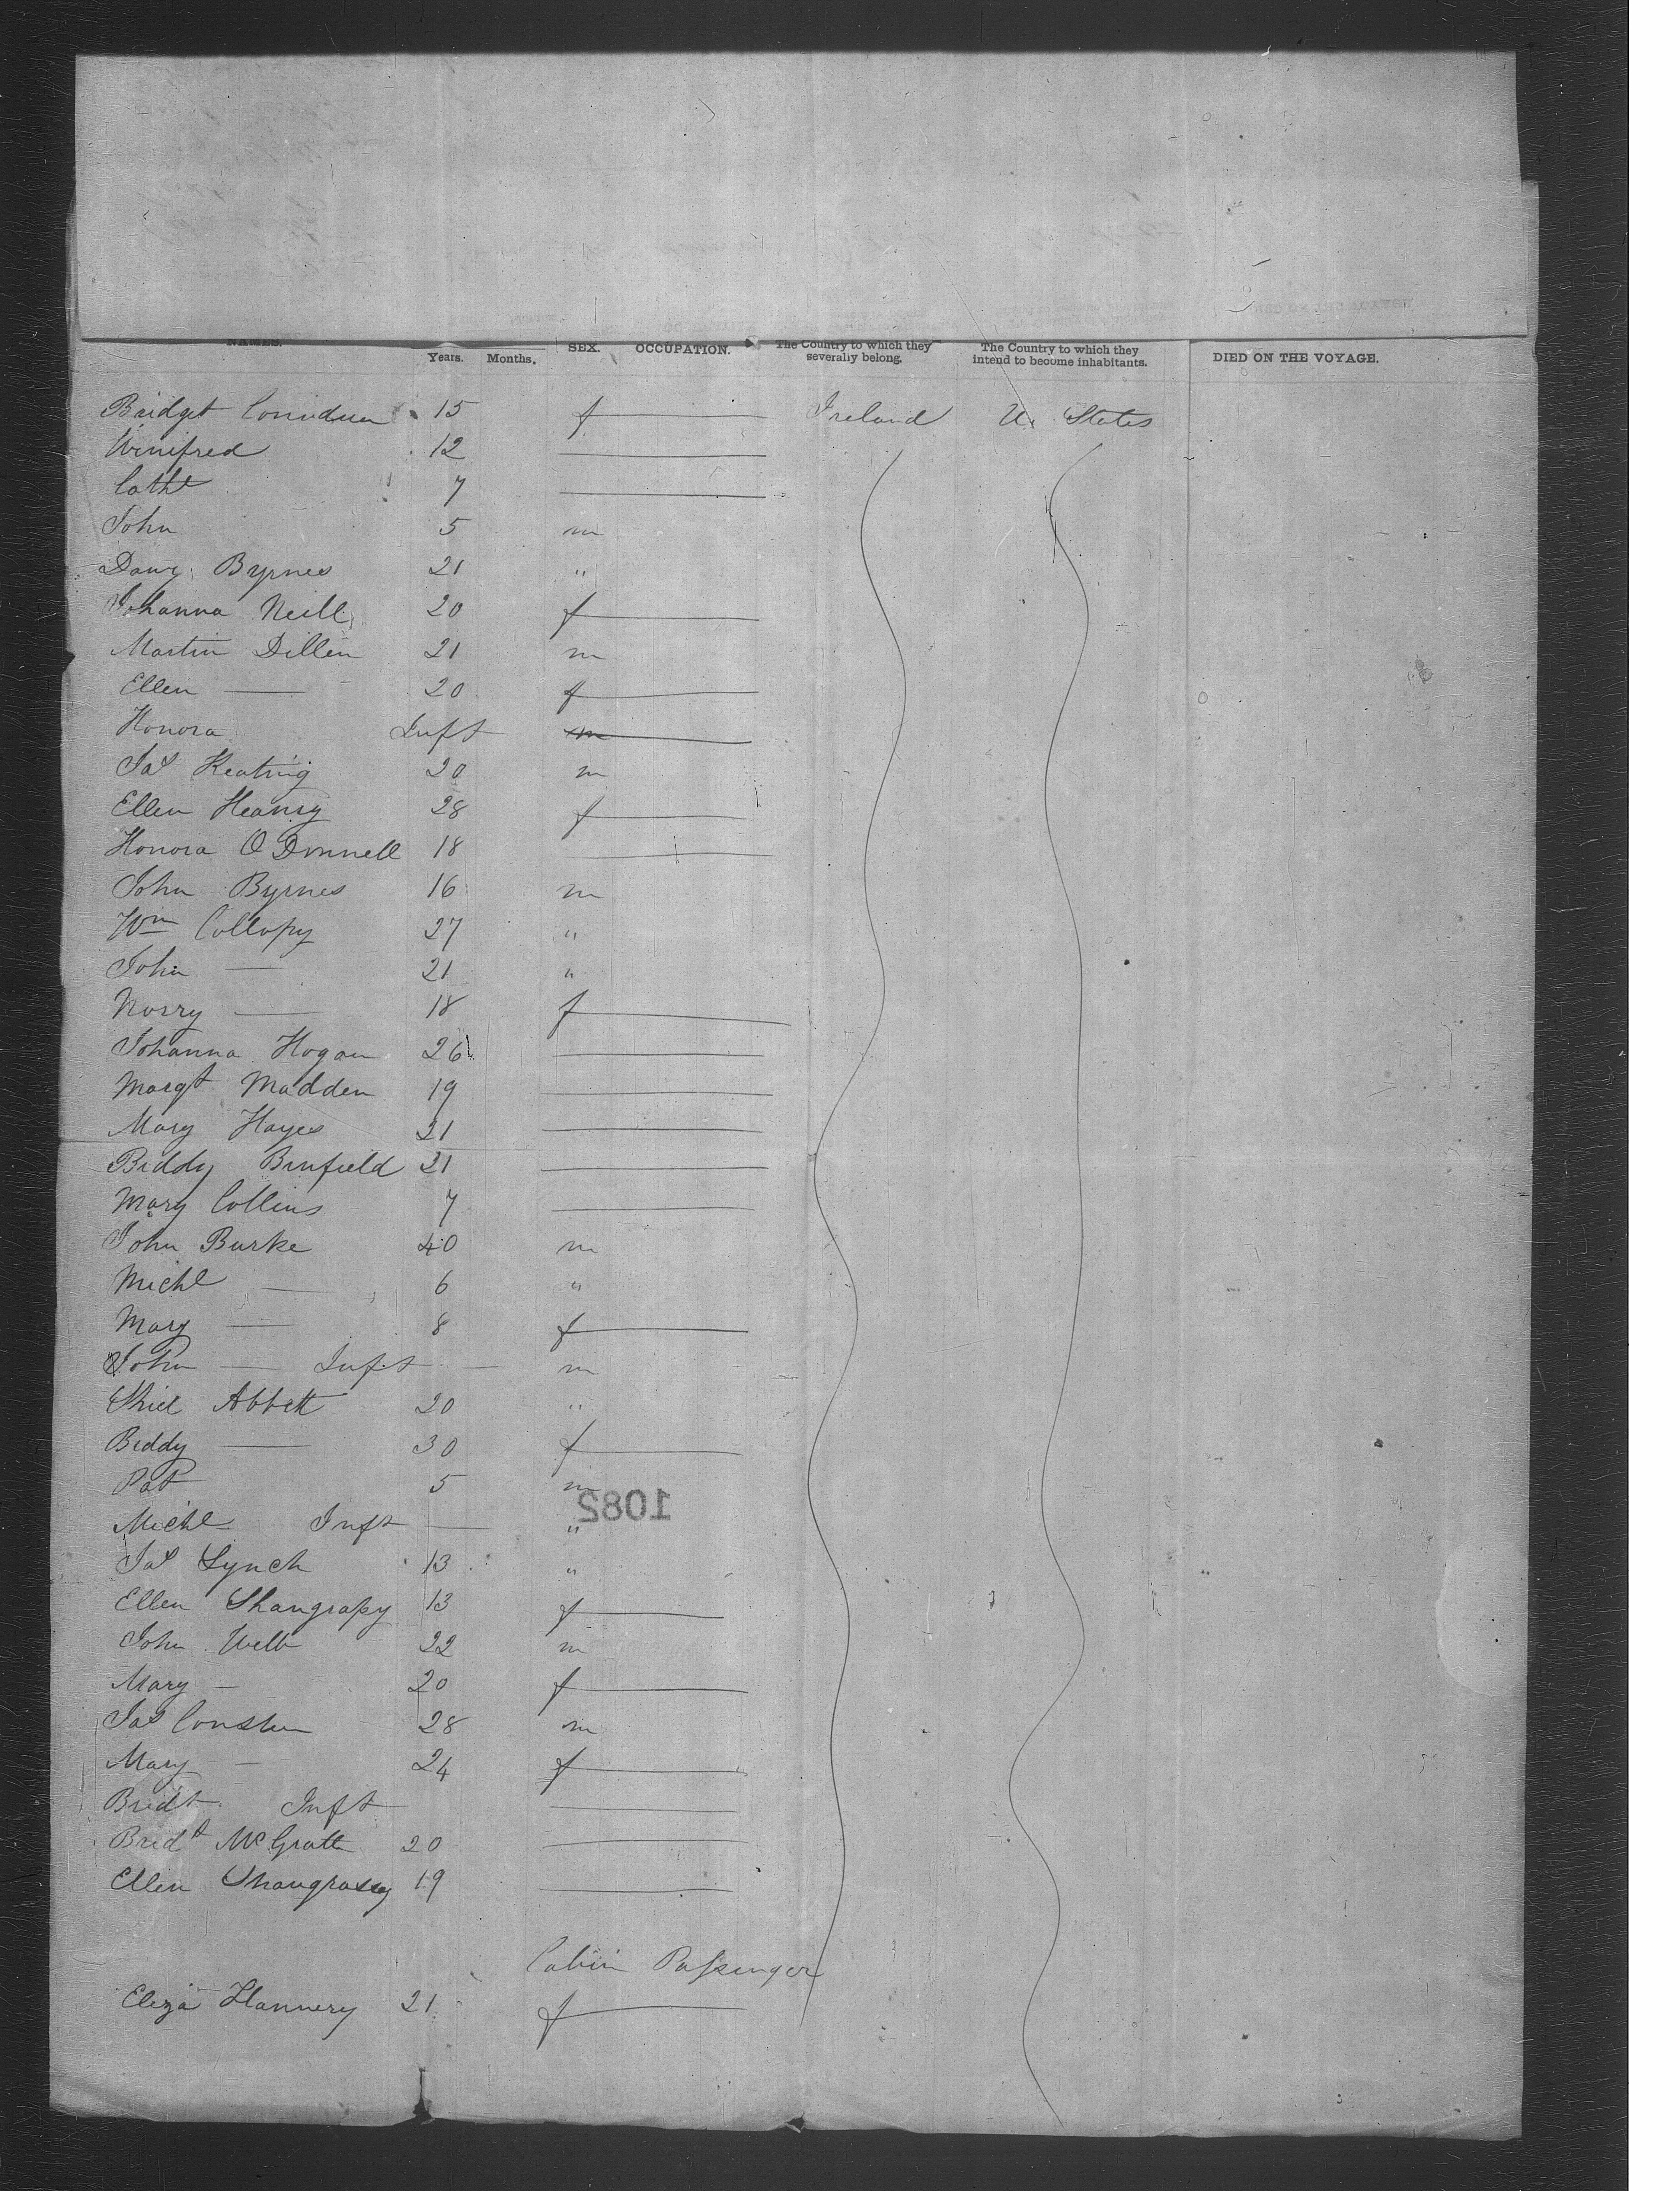 NAMES. Years. Months. SEX. OCCUPATION. The Country to which they severally belong. The Country to which they intend to become inhabitants. DIED ON THE VOYAGE.
Bridget 15 f Ireland U. States
Winifred 12
Cathe 7
John 5 m
Byrnes 21 "
Johanna Neill 20 f
Martin Dillen 21 m
Ellen — 20 f
Honora Inft
Jas Keating 20 m
Ellen Heaney 28 f
Honora O Donnell 18
John Byrnes 16 m
Wm Collopy 27 "
John — 21 "
Norry — 18 f
Johanna Hogan 26
Margt Madden 19
Mary Hayes 21
Biddy Binfield 21
Mary Collins 7
John Burke 40 m
Michl — 6 "
Mary — 8 f
John — Inft — m
Abbett 20 "
Biddy — 30 f
Pat 5 m
1082
Michl Inft — "
Jas Lynch 13 "
Ellen 13 f
John Webb 22 m
Mary — 20 f
Jas 28 m
Mary — 24 f
Bridt Inft
Bridt McGrath 20
Ellen Shaugrassy 19
Cabin Passenger
Eliza Flannery 21 f